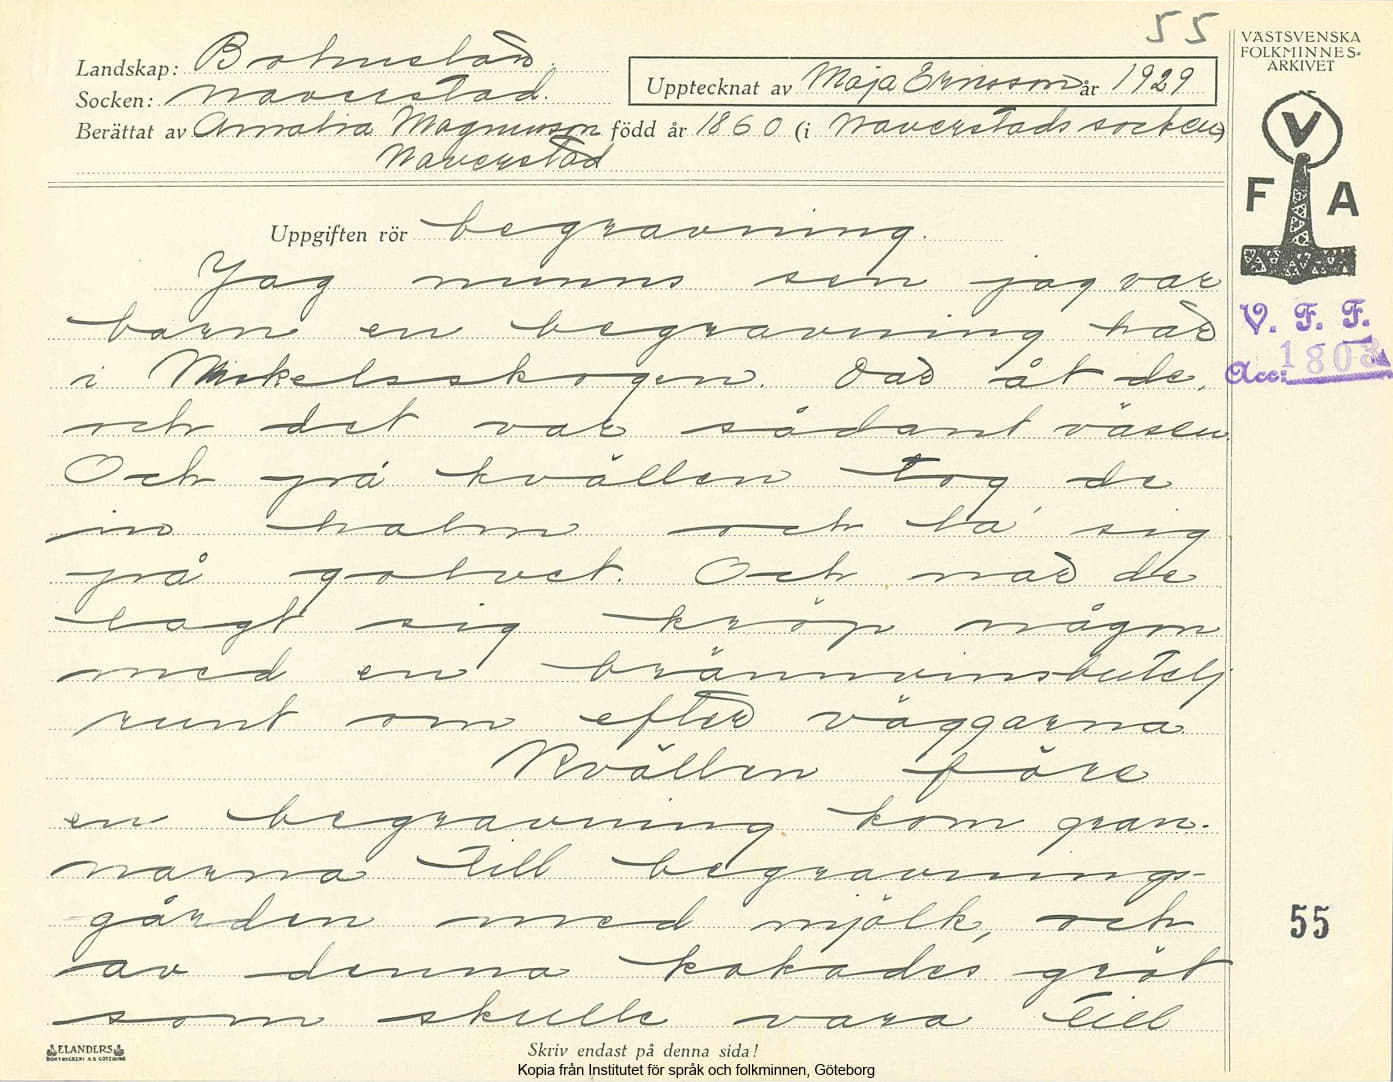 55
Landskap: Bohuslän.
Socken: Naverstad.
Upptecknat av Maja Ericsson år 1929
Berättat av Annalia Magnusson född år 1860 (i Naverstads socken)
Naverstad
VÄSTSVENSKA
FOLKMINNES-
ARKIVET
V
F A
V. F. F.
Acc: 1803
Uppgiften rör begravning.
Jag minns sen jag var
barn en begravning här
i Mikelsskogen. Där åt de,
och det var sådant väsen.
Och på kvällen tog de
in halm och la' sig
på golvet. Och när de
lagt sig kröp någon
med en brännvinsbutelj
runt om efter väggarna
Kvällen före
en begravning kom gran-
narna till begravnings-
gården med mjölk, och
av denna kokades gröt
som skulle vara till
55
ELANDERS
BOKTRYCKERI A.B. GÖTEBORG
Skriv endast på denna sida!
Kopia från Institutet för språk och folkminnen, Göteborg